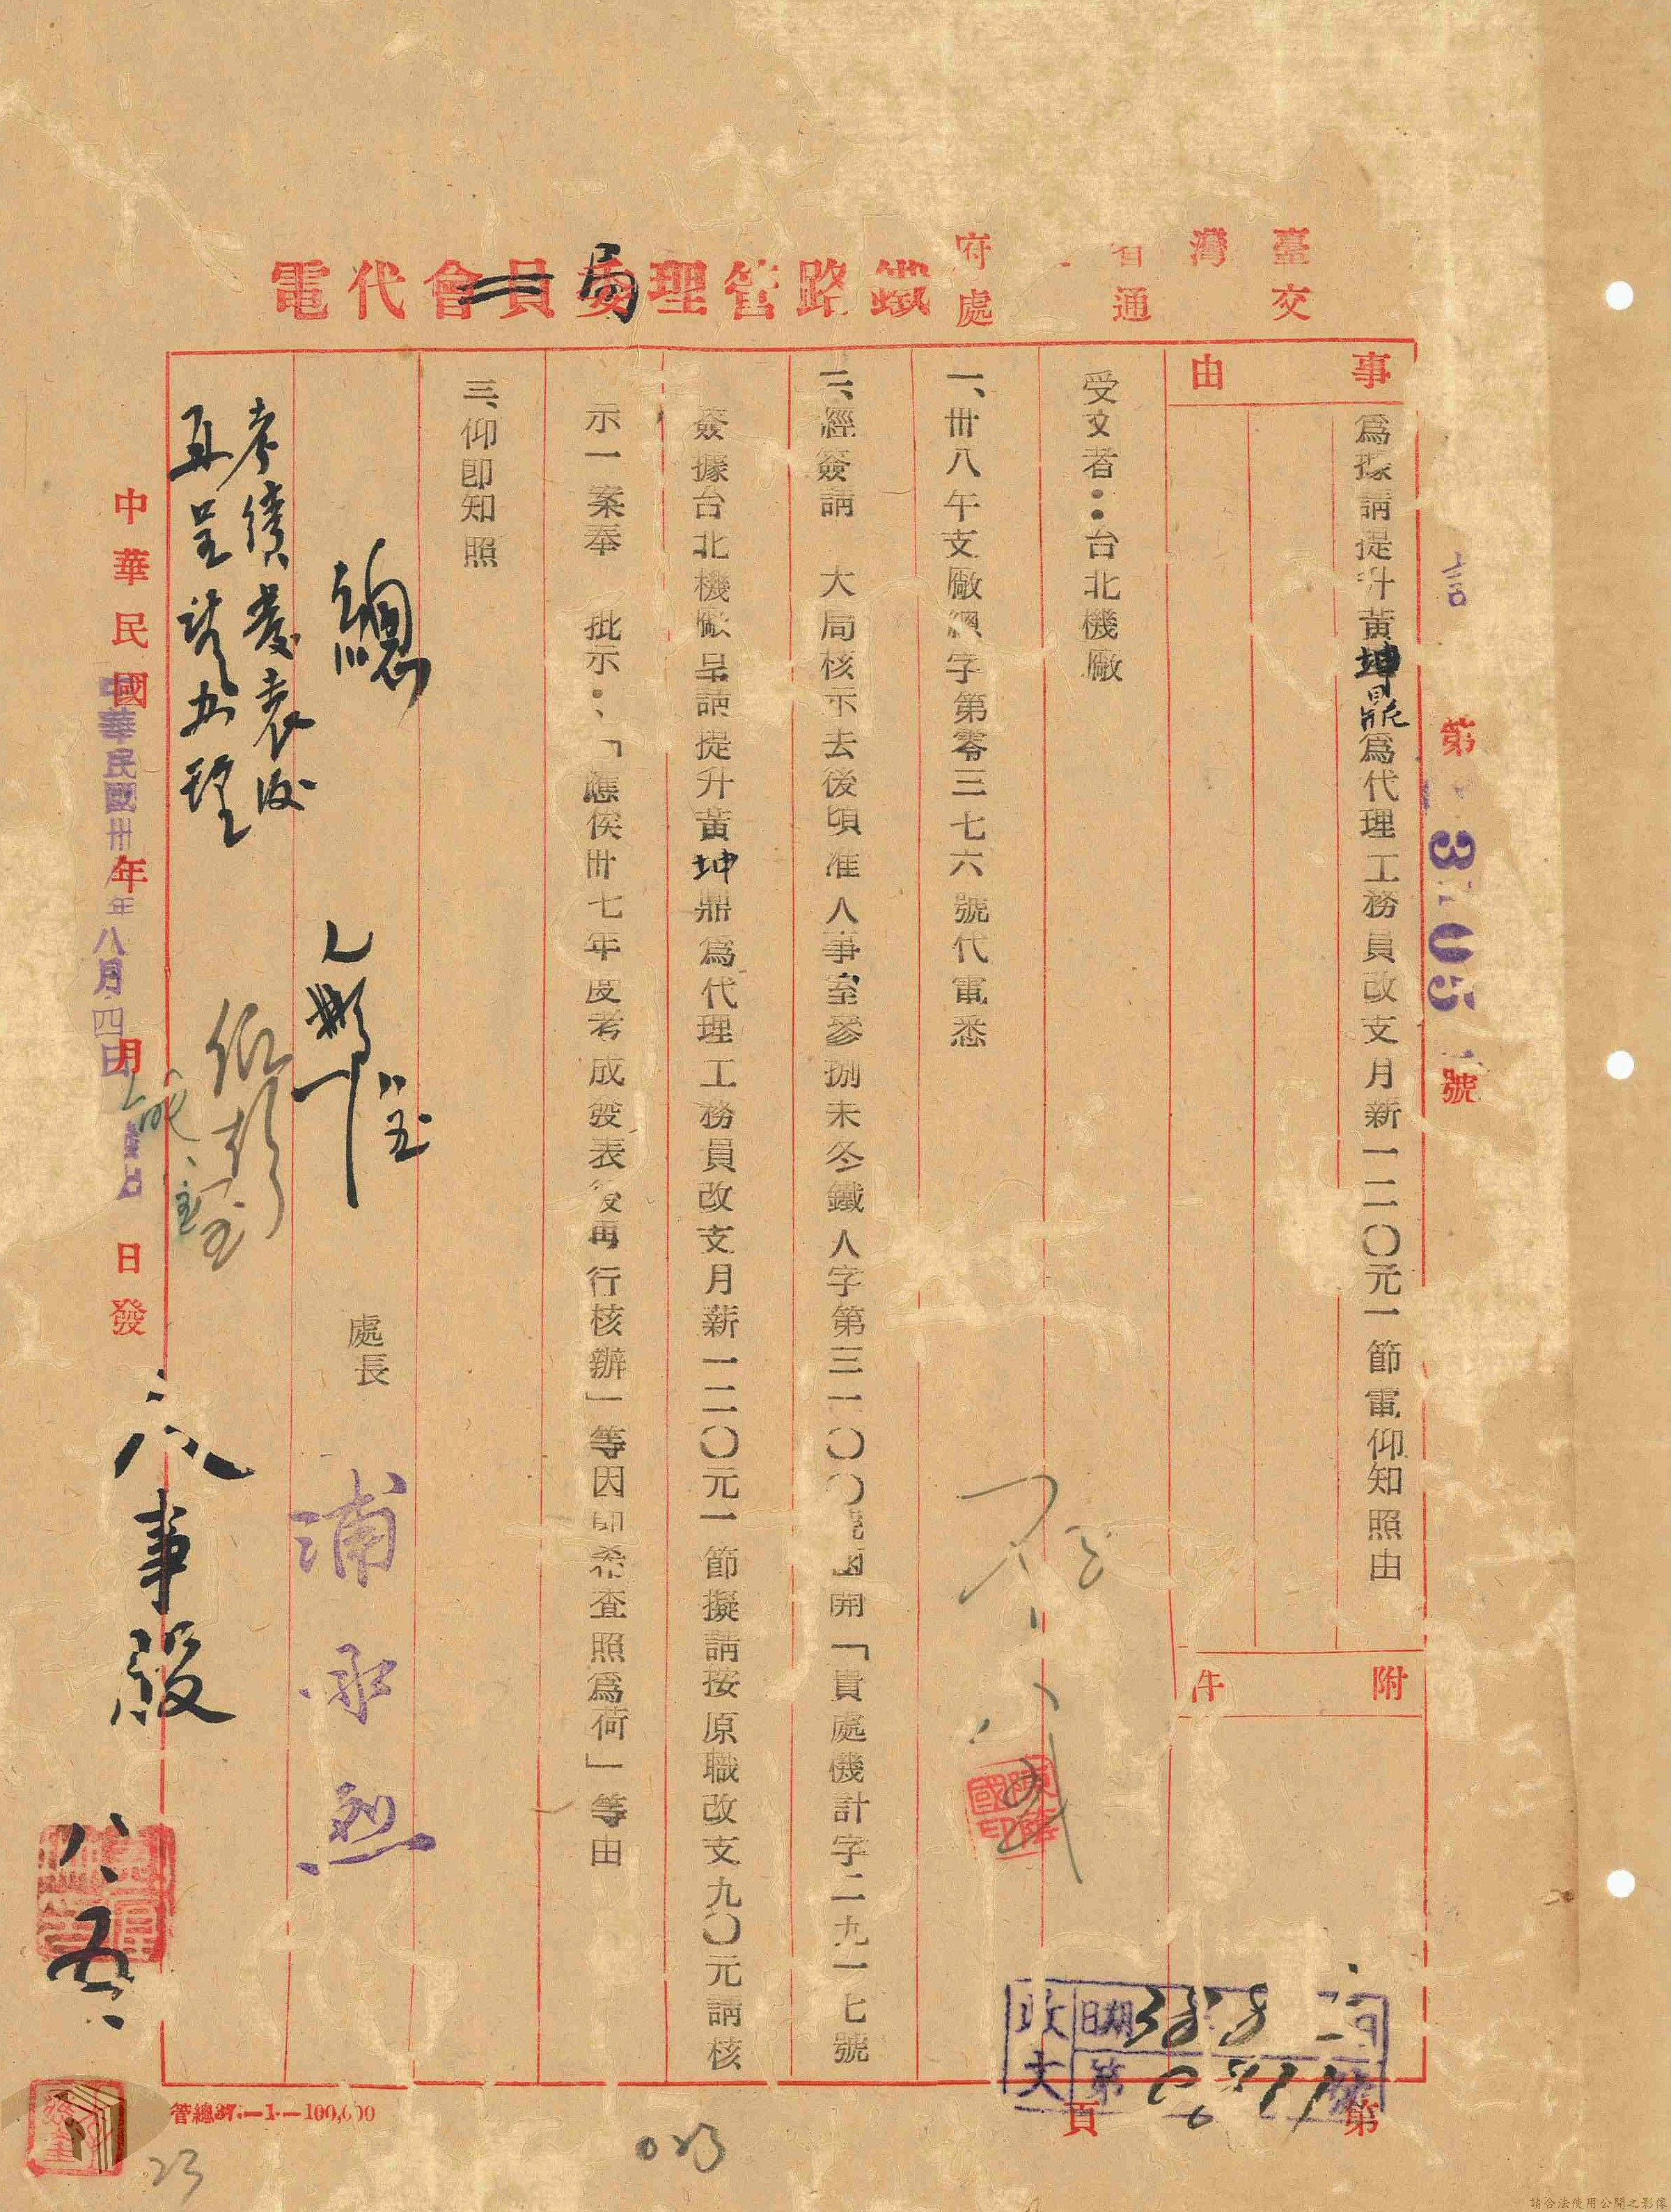 臺灣省 府
交通處
鐵路管理委員會代電
局
第 3 05 號
事由
爲據請提升黃坤鼎爲代理工務員改支月薪一二〇元一節電仰知照由
附件
受文者：台北機廠
一、卅八午支廠總字第零三七六號代電悉
二、經簽請 大局核示去後頃准人事室參捌未冬鐵人字第三一〇〇號函開「貴處機計字二九一七號
簽據台北機廠呈請提升黃坤鼎爲代理工務員改支月薪一二〇元一節擬請按原職改支九〇元請核
示一案奉 批示：「應俟卅七年度考成發表後再行核辦」等因即希查照爲荷」等由
三、仰卽知照
處長
浦承烈
總
考績發表後
再呈請加理
人事股
八、五
中華民國 年 月 日發
中華民國卅 年八月四日
收文
日期 38 8
第 號
第 頁
管總37.—1.—100,000
023
23
請合法使用公開之影像